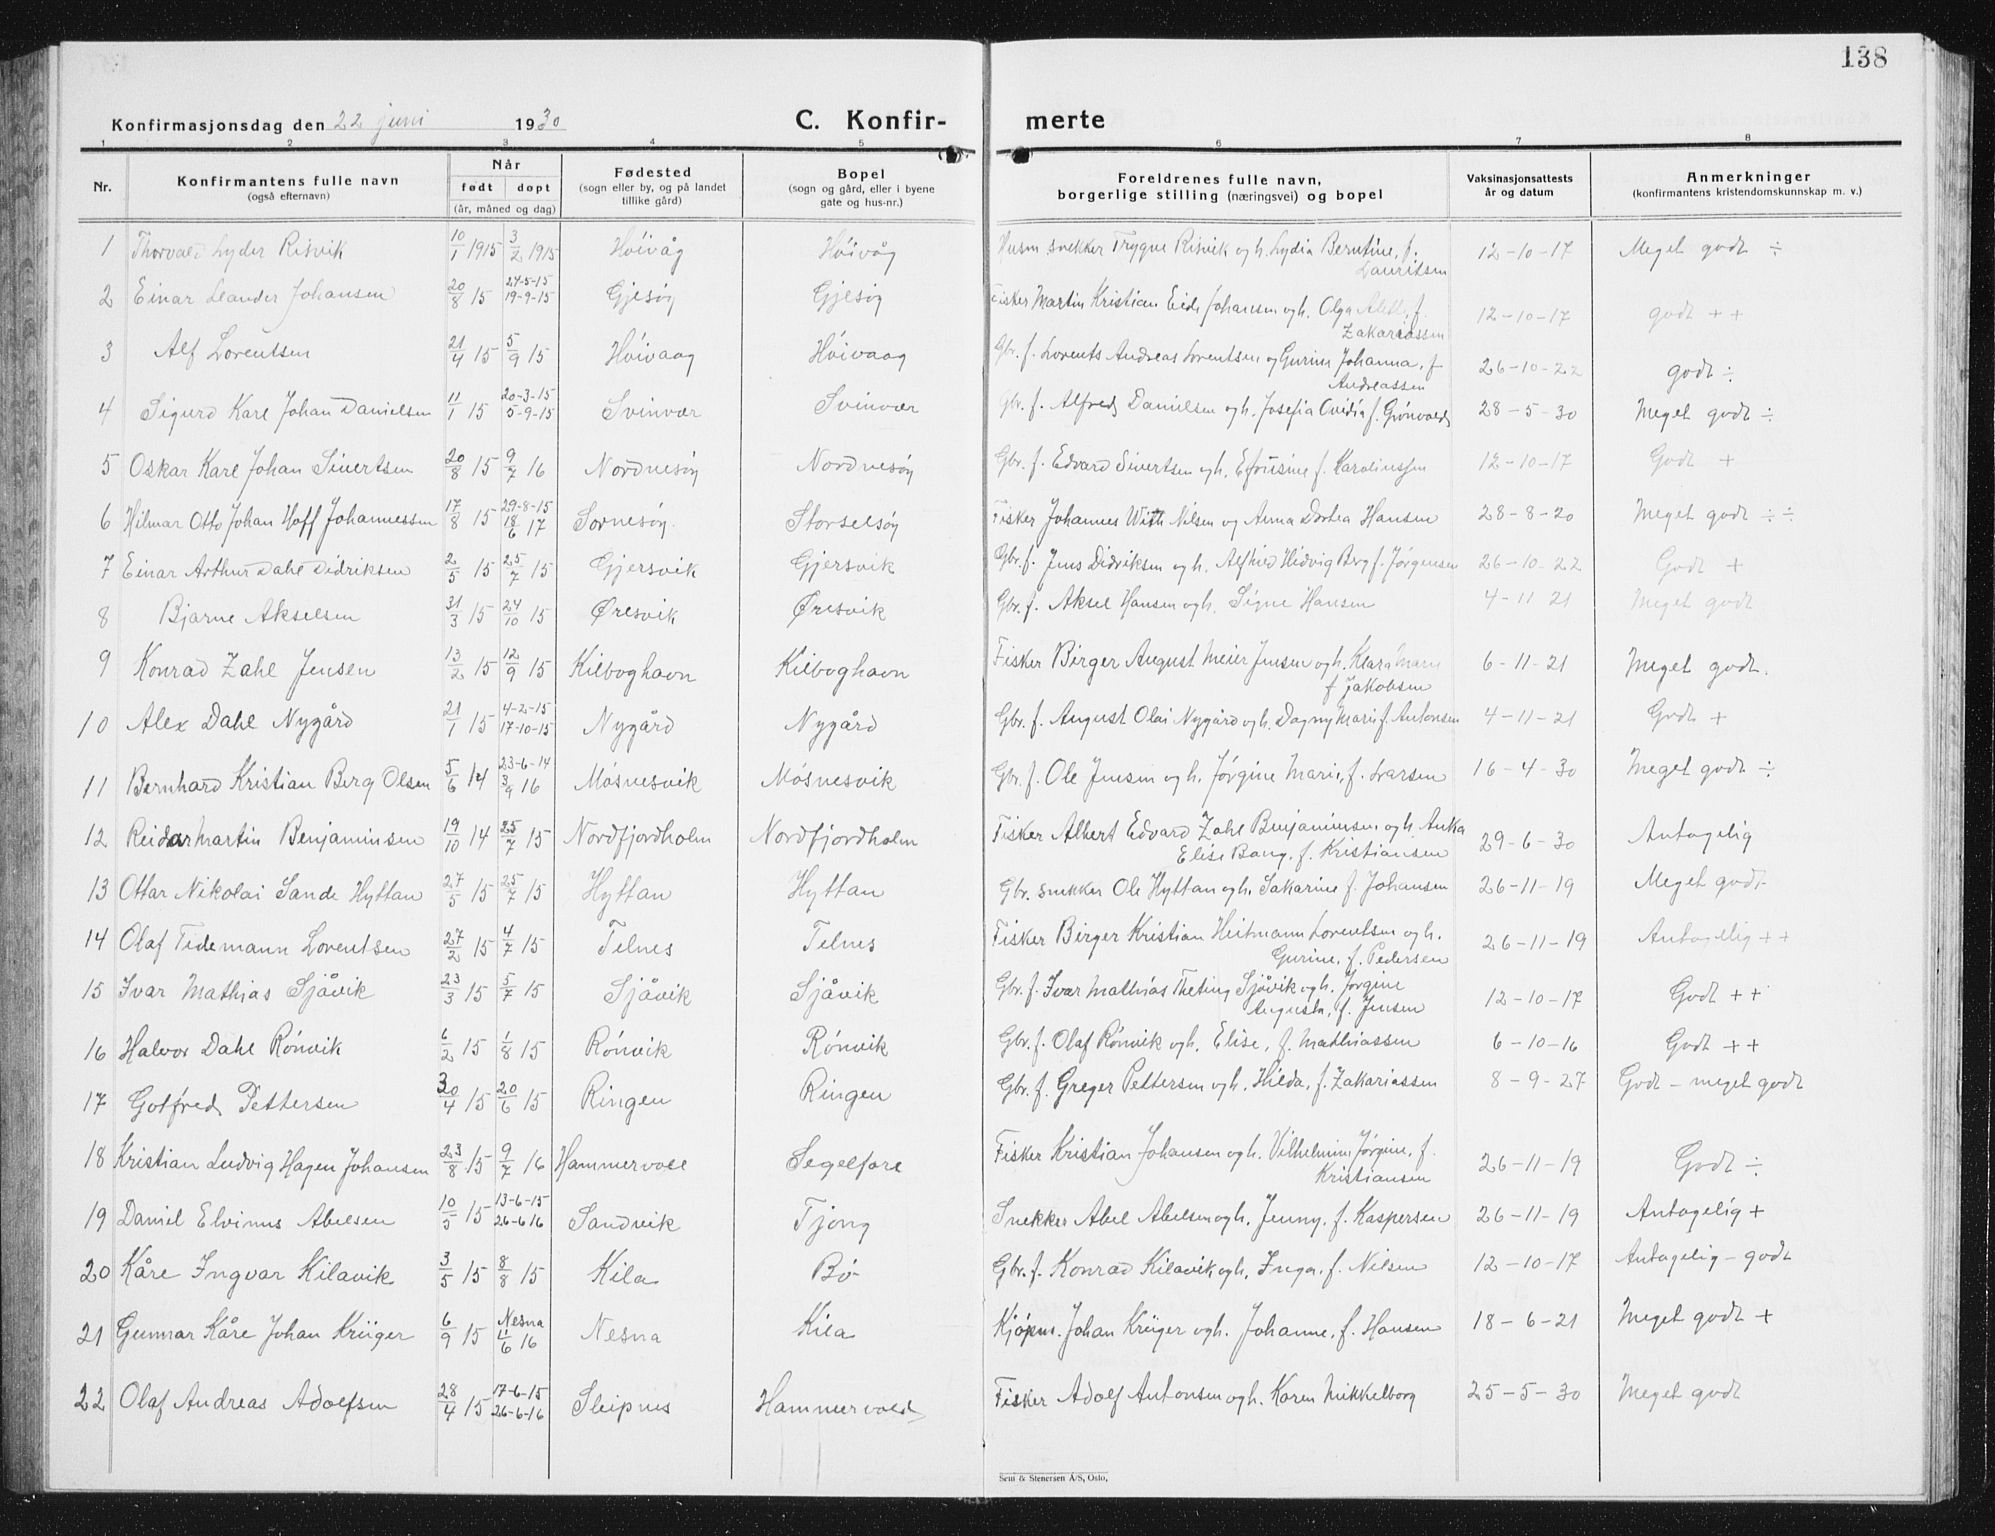 138
Konfirmasjonsdag den 22 juni 1930 C. Konfir- merte
1 2 3 4 5 6 7 8
Nr. Konfirmantens fulle navn (også efternavn) Når født døpt (år, måned og dag) Fødested (sogn eller by, og på landet tillike gård) Bopel (sogn og gård, eller i byene gate og hus-nr.) Foreldrenes fulle navn, borgerlige stilling (næringsvei) og bopel Vaksinasjonsattests år og datum Anmerkninger (konfirmantens kristendomskunnskap m. v.)
1 Thorvald Lyder Risvik 10/1 1915 3/2 1915 Höivåg Höivåg Husm. snekker Trygve Risvik og h. Lydia Berntine, f. Lauritsen 12-10-17 Meget godt ÷
2 Einar Leander Johansen 20/8 15 24-5-15 19-9-15 Gjesöy Gjesöy Fisker Martin Kristian Eide Johansen og h. Olga f. Zakariassen 12-10-17 godt ++
3 Alf Lorentsen 21/4 15 5/9 15 Höivaag Höivaag Gbr. f. Lorents Andreas Lorentsen og Gurine Johanna, f. Andreassen 26-10-22 godt ÷
4 Sigurd Kare Johan Danielsen 11/1 15 20-3-15 5-9-15 Svinvær Svinvær Gbr. f. Alfred Danielsen og h. Josefia Ovidia f. Grönvold 28-5-30 Meget godt ÷
5 Oskar Kare Johan Sivertsen 20/8 15 9/7 16 Nordnesöy Nordnesöy Gbr. f. Edvard Sivertsen og h. Efrusine f. Karoliussen 12-10-17 Godt +
6 Hilmar Otto Johan Hoff Johannessen 17/8 15 29-8-15 18/6 17 Sörnesöy Storselsöy Fisker Johannes With Nilsen og Anna Dortea Hansen 28-8-20 Meget godt ÷ ÷
7 Einar Arthur Dahl Didriksen 2/5 15 25/7 15 Gjersvik Gjersvik Gbr. f. Jens Didriksen og h. Alfhild Hedvig Berg f. Jørgensen 26-10-22 Godt +
8 Bjarne Akselsen 31/3 15 24/10 15 Øresvik Øresvik Gbr. f. Aksel Hansen og h. Signe Hansen 4-11 21 Meget godt
9 Konrad Zahl Jensen 13/2 15 12/9 15 Kilboghavn Kilboghavn Fisker Birger August Meier Jensen og h. Klara Marie f Jakobsen 6-11-21 Meget godt.
10 Alex Dahl Nygård 21/1 15 4-2-15 17-10-15 Nygård Nygård Gbr. f. August Olai Nygård og h. Dagny Marie f. Antonsen 4-11-21 Godt +
11 Bernhard Kristian Berg Olsen 5/6 14 23-6-14 3/9 16 Mösnesvik Mösnesvik Gbr. f. Ole Jensen og h. Jörgine Marie, f. Larsen 16-4-30 Meget godt ÷
12 Reidar Martin Benjaminsen 19/10 14 25/7 15 Nordfjordholm Nordfjordholm Fisker Albert Edvard Zahl Benjaminsen og h. Anka Elise Bang, f. Kristiansen 29-6-30 Antagelig
13 Ottar Nikolai Sande Hyttan 27/5 15 25/7 15 Hyttan Hyttan Gbr. snekker Ole Hyttan og h. Sakarine f. Johansen 26-11-19 Meget godt
14 Olaf Tidemann Lorentsen 27/2 15 4/7 15 Telnes Telnes Fisker Birger Kristian Heitmann Lorentsen og h. Gurine, f. Pedersen 26-11-19 Antagelig ++
15 Ivar Mathias Sjåvik 23/3 15 5/7 15 Sjåvik Sjåvik Gbr. f. Ivar Mathias Theting Sjåvik og h. Jörgine Augusta, f. Jensen 12-10-17 Godt ++
16 Halvor Dahl Rönvik 6/2 15 1/8 15 Rönvik Rönvik Gbr. f. Olaf Rönvik og h. Elise, f. Mathiassen 6-10-16 Godt ++
17 Gotfred Pettersen 30/4 15 20/6 15 Ringen Ringen Gbr. f. Greger Pettersen og h. Hilda, f. Zakariassen 8-9-27 Godt – meget godt
18 Kristian Ludvig Hagen Johansen 23/8 15 9/7 16 Hammervoll Segelfore Fisker Kristian Johansen og h. Vilhelmine Jörgine, f. Kristiansen 26-11-19 Godt ÷
19 Daniel Elvinus Abelsen 10/5 15 13-6-15 26-6 16 Sandvik Tjong Snekker Abel Abelsen og h. Jenny, f. Kaspersen 26-11-19 Antagelig +
20 Kåre Ingvar Kilavik 3/5 15 8/8 15 Kila Bö Gbr. f. Konrad Kilavik og h. Inga, f. Nilsen 12-10-17 Antagelig – godt
21 Gunnar Kåre Johan Krüger 6/9 15 Nesna 11/6 16 Nesna Kila Kjöpm. Johan Krüger og h. Johanne, f. Hansen 18-6-21 Meget godt +
22 Olaf Andreas Adolfsen 28/4 15 17-6-15 26-6-16 Sleipnes Hammervold Fisker Adolf Antonsen og h. Karen Mikkelborg 25-5-30 Meget godt
Sem & Stenersen A/S, Oslo,